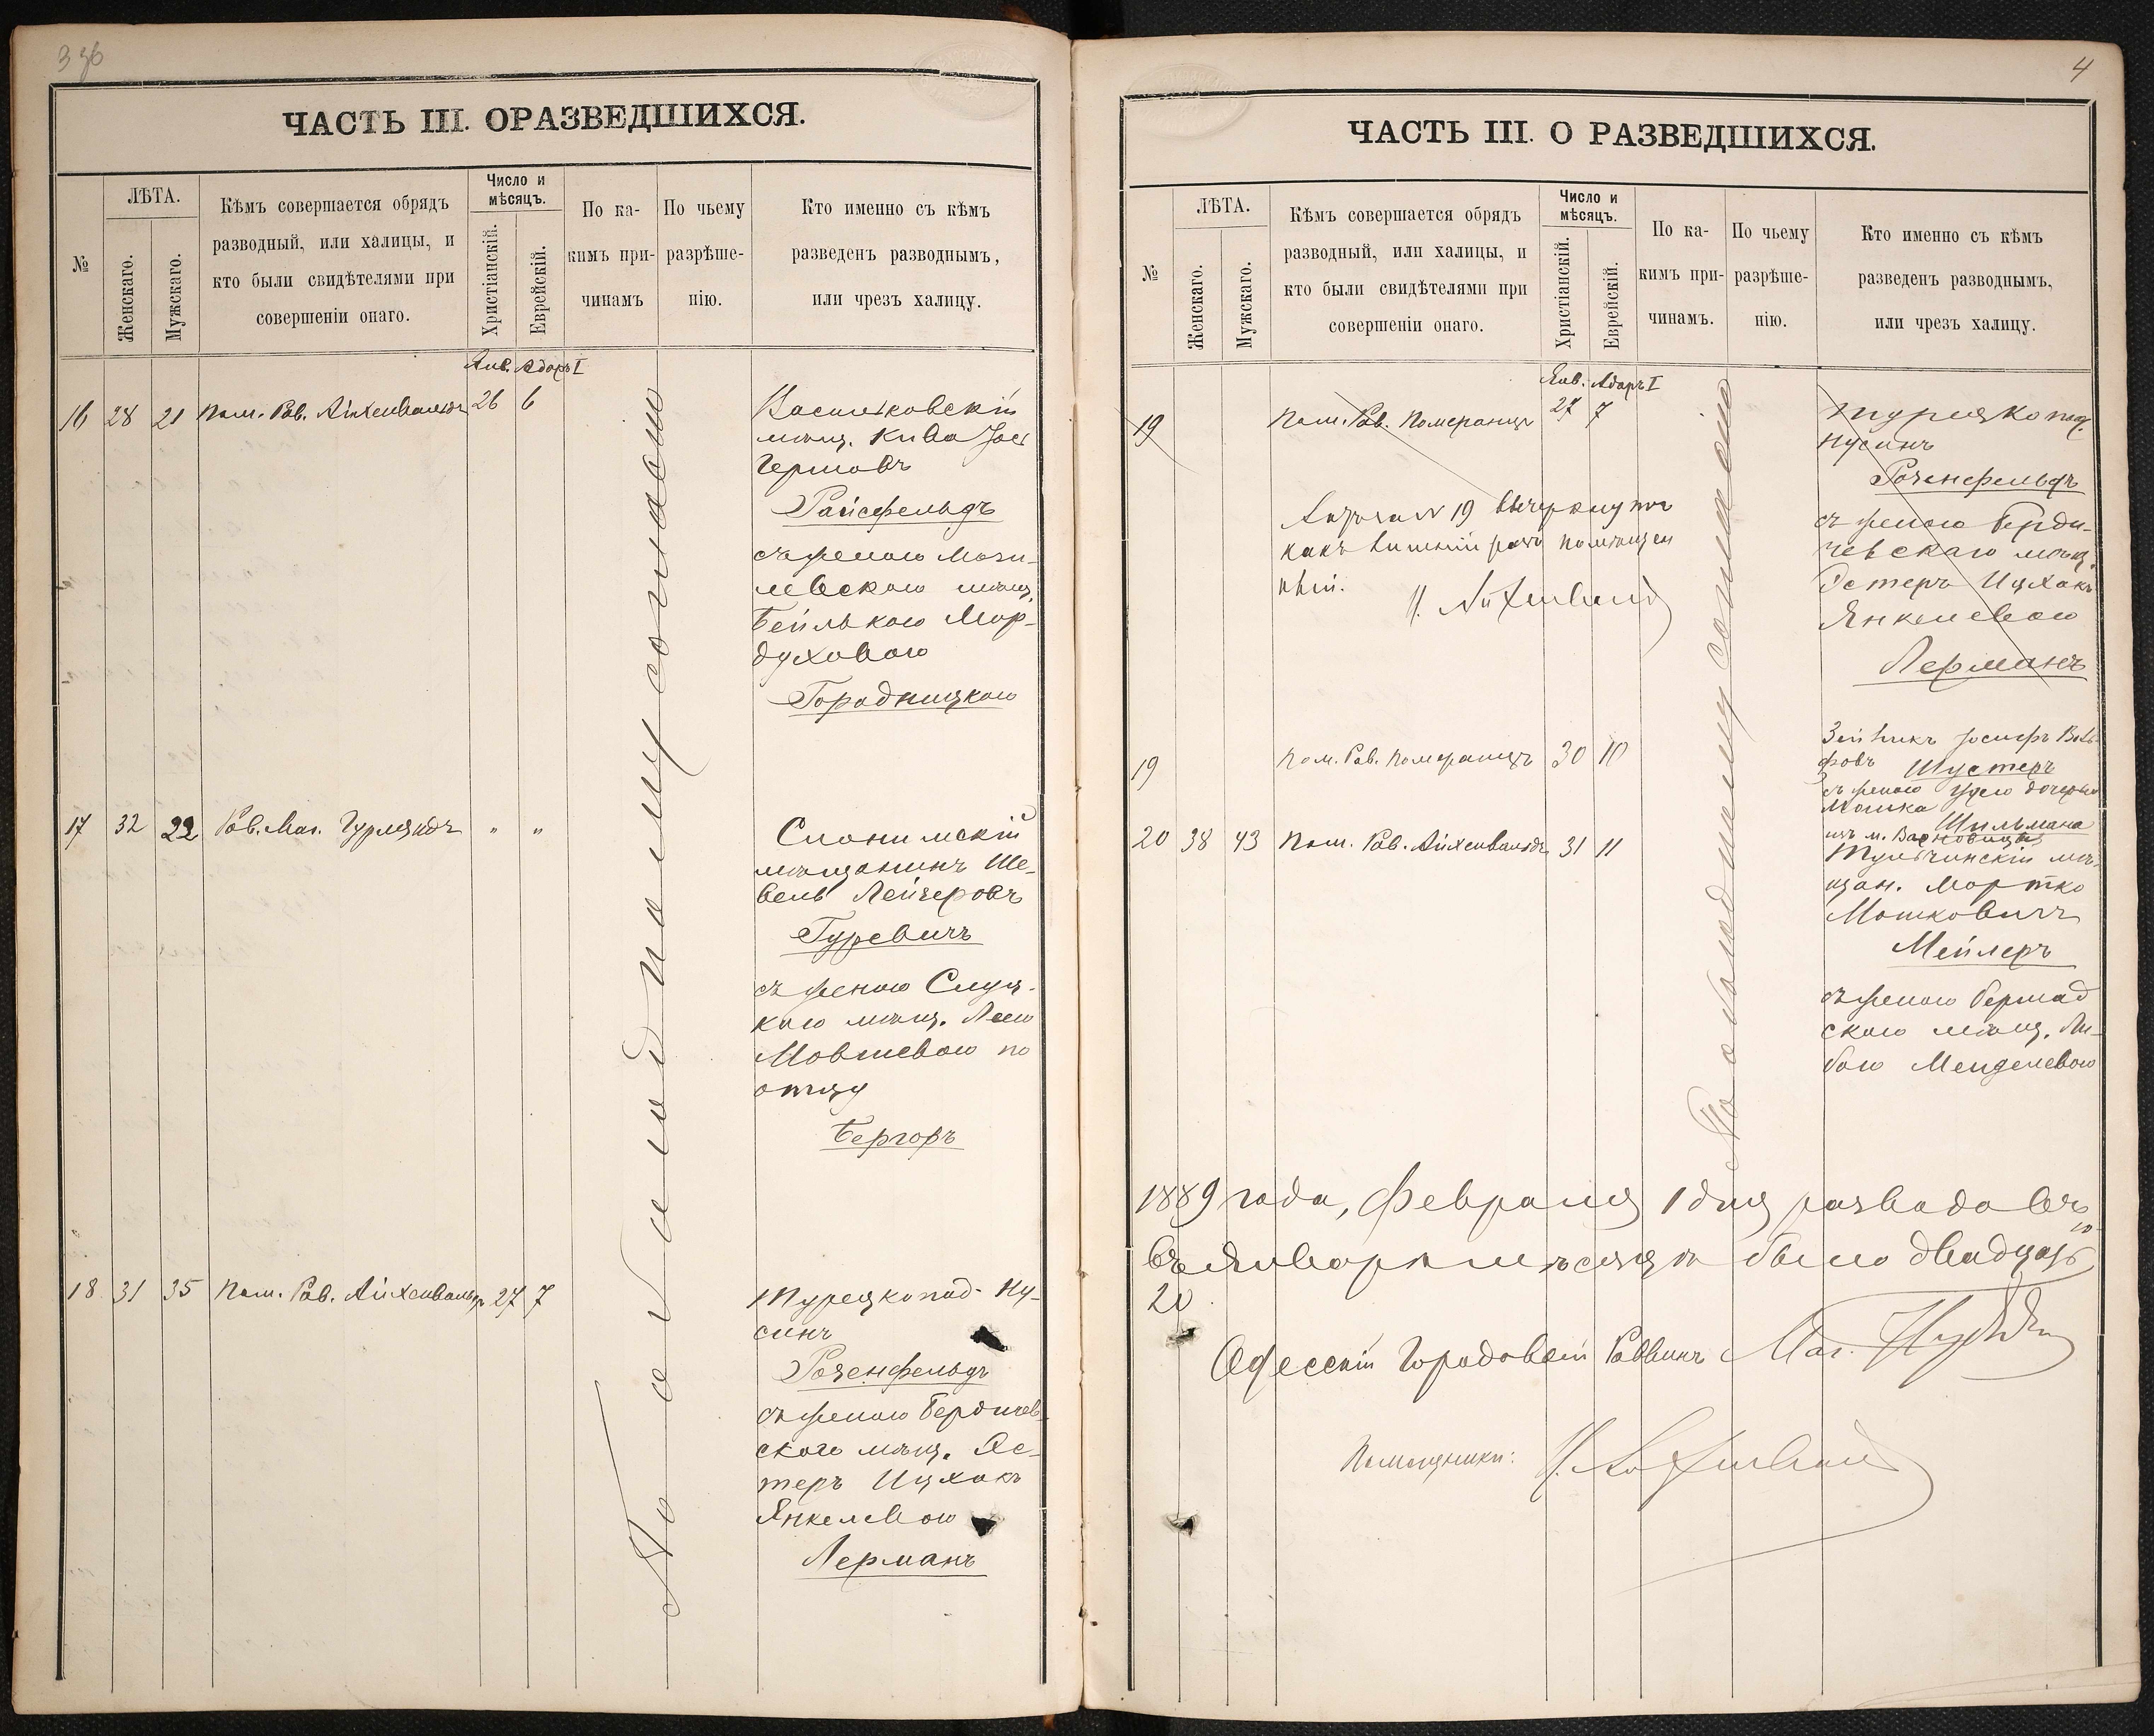 336
ЧАСТЬ III. О РАЗВЕДШИХСЯ.
№
ЛѢТА.
Женскаго.
Мужскаго.
Кѣмъ совершается обрядъ
разводный, или халицы, и
кто были свидѣтелями при
совершеніи онаго.
Число и
мѣсяцъ.
Христіанскій.
Еврейскій.
По ка-
кимъ при-
чинамъ
По чьему
разрѣше-
нію.
Кто именно съ кѣмъ
разведенъ разводнымъ,
или чрезъ халицу.
Янв. Адаръ I
16 28 21 Пом. Рав. Айхенвальдъ 26 6
Васильковскій
мѣщ. Кива Іос
Гершовъ
Райсфельдъ
съ женою Моги-
левскою мѣщ.
Бейлькою Мор-
духовою
Городницкою
17 32 22 Рав. Маг. Гурляндъ " "
Слонимскій
мѣщанинъ Ше-
вель Лейзеровъ
Гуревичъ
съ женою Слуц-
кою мѣщ. Леею
Мовшевою по
отцу
Бергоръ
18 31 35 Пом. Рав. Айхенвальдъ 27 7
Турецко под. Ну-
синъ
Розенфельдъ
съ женою Бердичев-
скою мѣщ. Эс-
теръ Ицхокъ
Янкелевою
Лерманъ
По обоюдному согласію
4
ЧАСТЬ III. О РАЗВЕДШИХСЯ.
№
ЛѢТА.
Женскаго.
Мужскаго.
Кѣмъ совершается обрядъ
разводный, или халицы, и
кто были свидѣтелями при
совершеніи онаго.
Число и
мѣсяцъ.
Христіанскій.
Еврейскій.
По ка-
кимъ при-
чинамъ.
По чьему
разрѣше-
нію.
Кто именно съ кѣмъ
разведенъ разводнымъ,
или чрезъ халицу.
Янв. Адаръ I
19 Пом. Рав. Померанцъ 27 7
Турецко под.
Нусинъ
Розенфельдъ
съ женою Берди-
чевскаго мѣщ.
Эстеръ Ицхокъ
Янкелевою
Лерманъ
№ 19 вычеркнута
какъ
19 Пом. Рав. Померанцъ 30 10
Іосифъ Воль-
фовъ Шустеръ
съ женою дочерью
Мошка Шильмана
изъ м.
20 38 43 Пом. Рав. Айхенвальдъ 31 11
Тульчинскій мѣ-
щан. Мортко
Мошковичъ
Мейлеръ
съ женою Бершад
скою мѣщ. Ли-
бою Менделевою
По обоюдному согласію
1889 года, Февраля 1 дня разводовъ
въ Январѣ мѣсяцѣ было двадцать
20
Одесскій Городовой Раввинъ Маг.
Помощники: